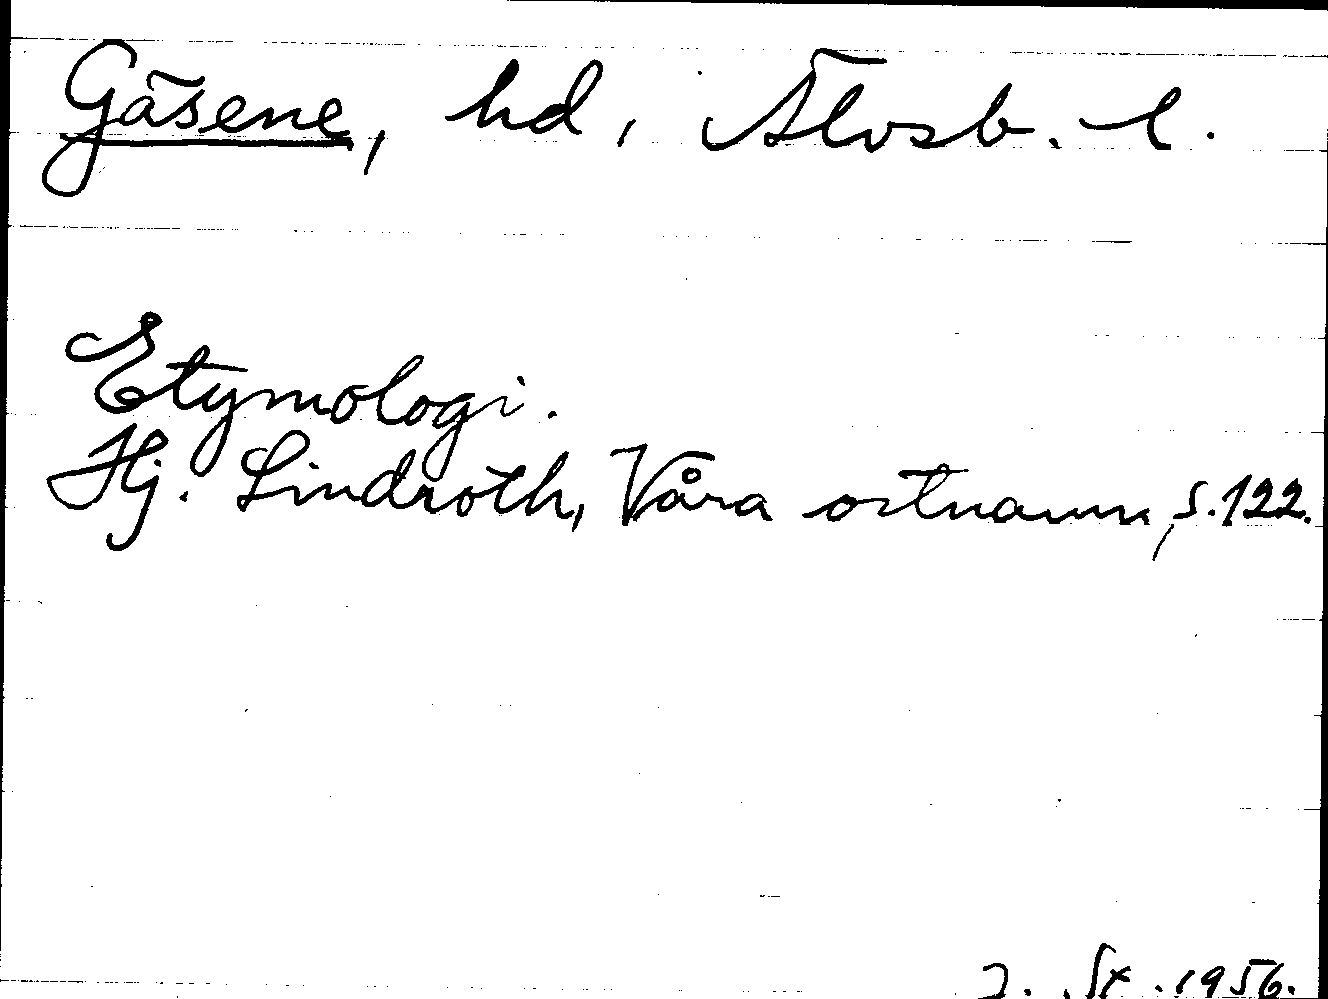 Gäsene, hd, Älvsb. l.
Etymologi.
Hj. Lindroth, Våra ortnamn, s. 122.
J. St. 1956.